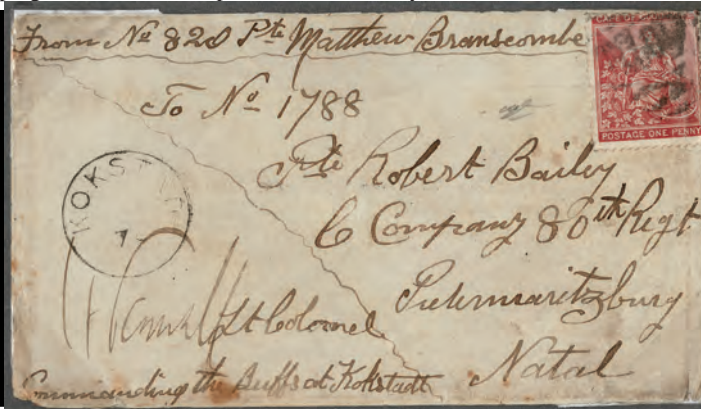 From No 820 Pte Matthew Branscombe
To No 1788
Pte Robert Bailey
C Company 80th Regt
Pietermaritzburg
Natal
Lt Colonel
Commanding the Buffs at Kokstadt
KOKSTAD
7
CAPE OF GOOD
POSTAGE ONE PENNY